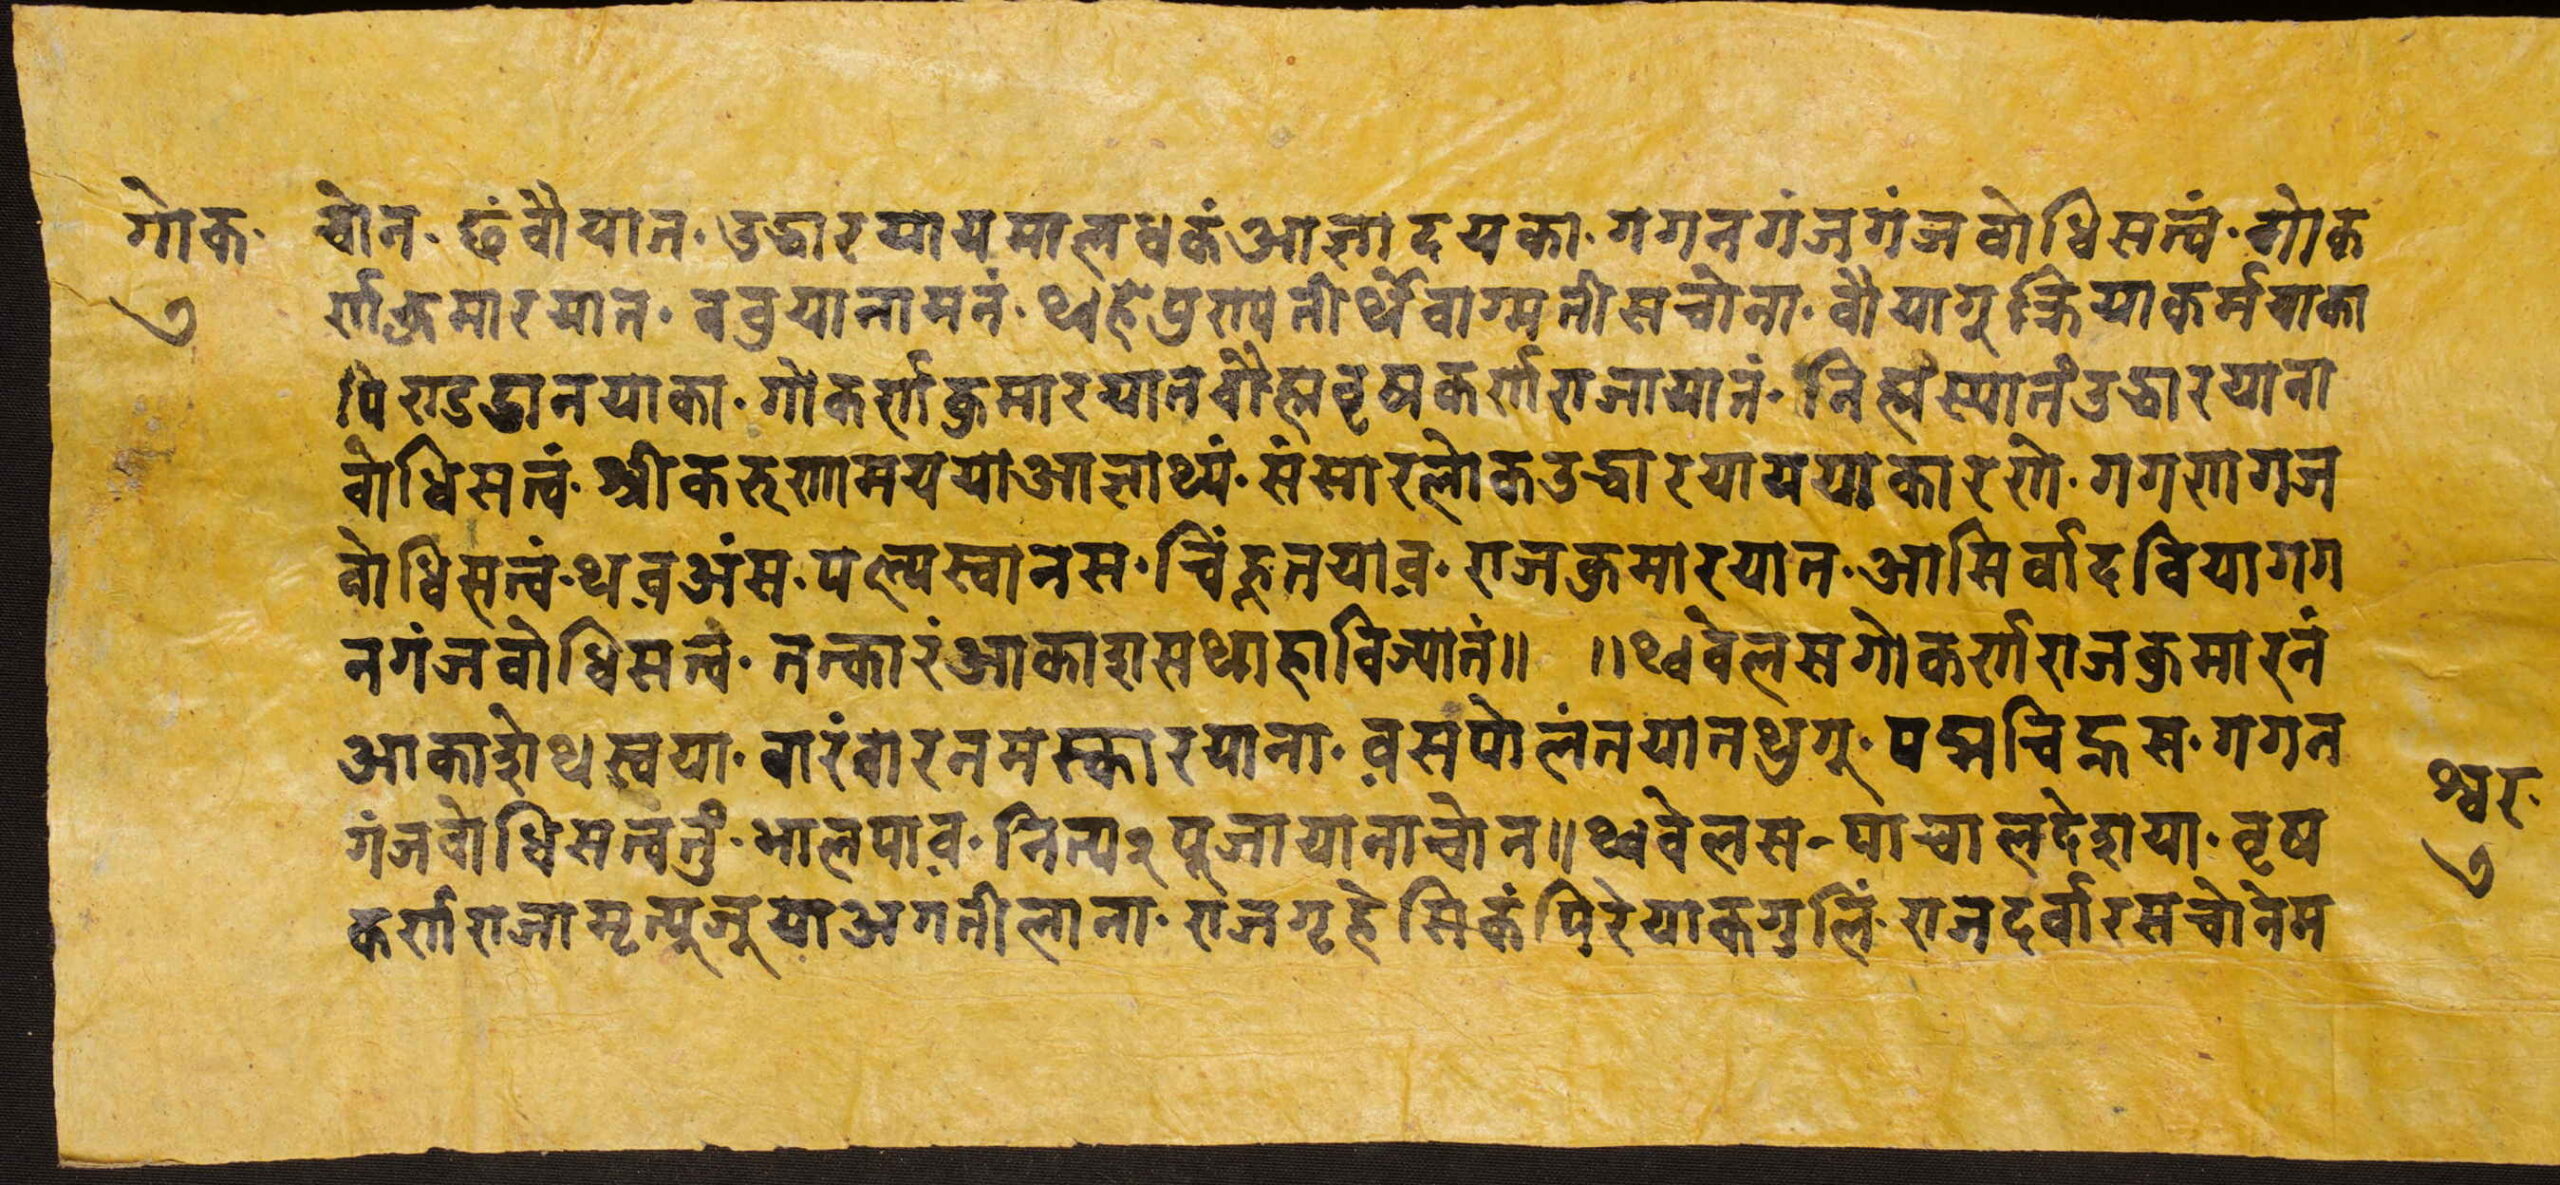 गोक
७
चोन · छंवौयान · उद्धारयायमालधकंआज्ञादयका · गगनगंजगंजबोधिसत्वं · गोक
र्णकुमारयान · बवुयानामनं · थ्वहेपुरापतीर्थेवाग्मतीसचोना · वौयागुक्रियाकर्मयाका
पिराडदानयाका · गोकर्णकुमारयानवौह्मवृषकर्णराजायानं · निह्मंस्यानंउद्धारयाना
बोधिसत्वं · श्रीकरुणामययाआज्ञाथ्यं · संसारलोकउद्धारयाययाकारणे · गगणगज
बोधिसत्वं · थवअंस · पल्यस्वानस · चिंहूतयाव · राजकुमारयान · आसिर्वादवियागग
नगंजबोधिसत्वं · तत्कारंआकाशसथाहाविज्यातं॥ ॥थ्ववेलसगोकर्णराजकुमारनं
आकाशेथस्वया · बारंबारनमस्कारयाना · वसपोलंनयानथुगु · पद्मचिह्नस · गगन
गंजबोधिसत्वनुं · भालपाव · नित्य२पूजायानाचोन॥थ्ववेलस-पाचालदेशया · वृष
कर्णराजामृत्युजूयाअगतीलाना · राजगृहेसिकंपिरेयाकगुलिं · राजदर्वारसचोनेम
श्वर
७